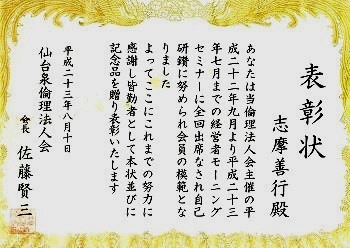 表彰状
志摩善行殿
あなたは当倫理法人会主催の平
成二十二年九月より平成二十三
年七月までの経営者モーニング
セミナーに全回出席なされ自己
研鑽に努められ会員の模範とな
りました
よってここにこれまでの努力に
感謝し皆勤者として本状並びに
記念品を贈り表彰いたします
平成二十三年八月十日
仙台泉倫理法人会
会長 佐藤賢三